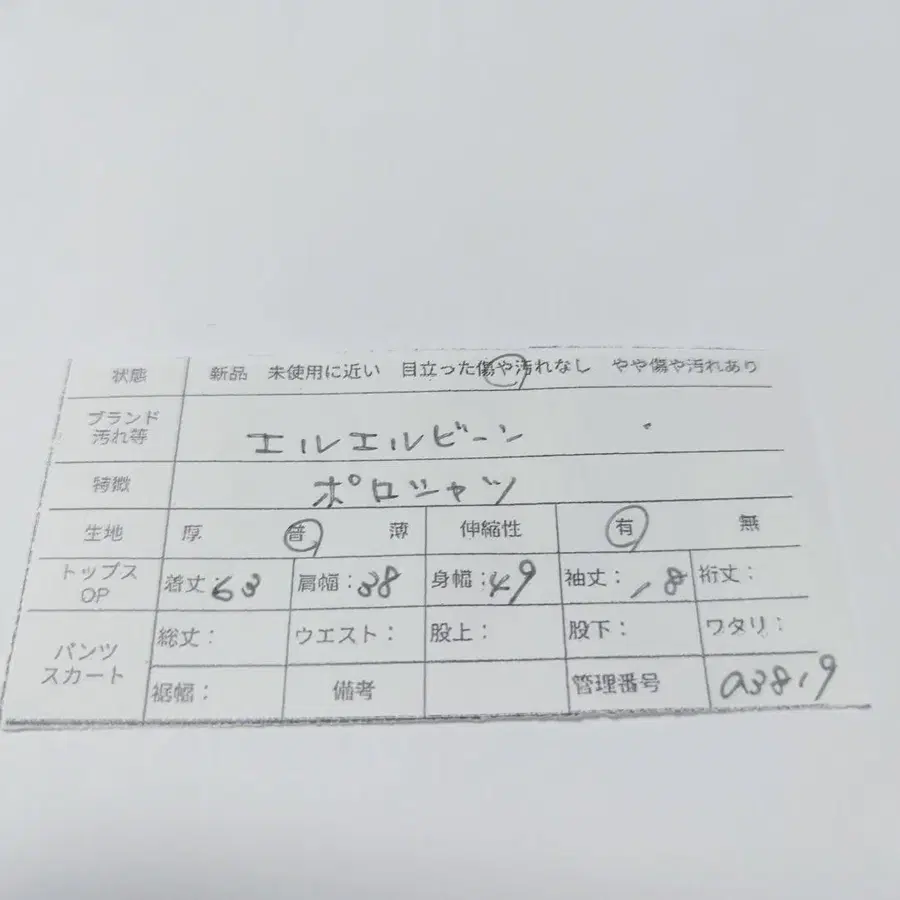 状態 新品 未使用に近い 目立った傷や汚れなし やや傷や汚れあり
ブランド
汚れ等 エルエルビーン
特徴 ポロシャツ
生地 厚 普 薄 伸縮性 有 無
トップス
OP 着丈:63 肩幅:38 身幅:49 袖丈:18 裄丈:
パンツ
スカート 総丈: ウエスト: 股上: 股下: ワタリ:
裾幅: 備考 管理番号 a3819